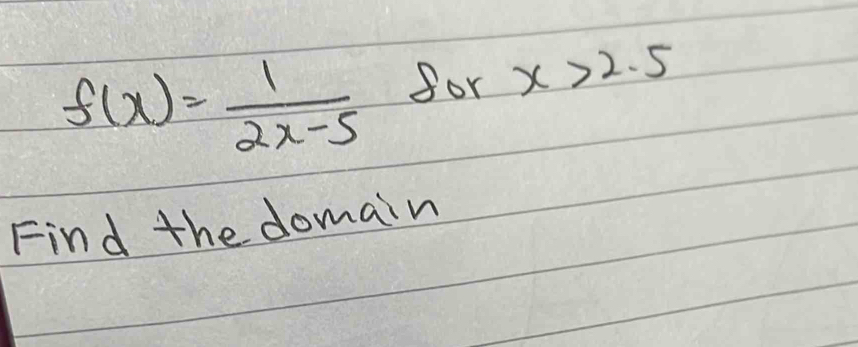 f(x) = 1/(2x-5) for x > 2.5
Find the domain